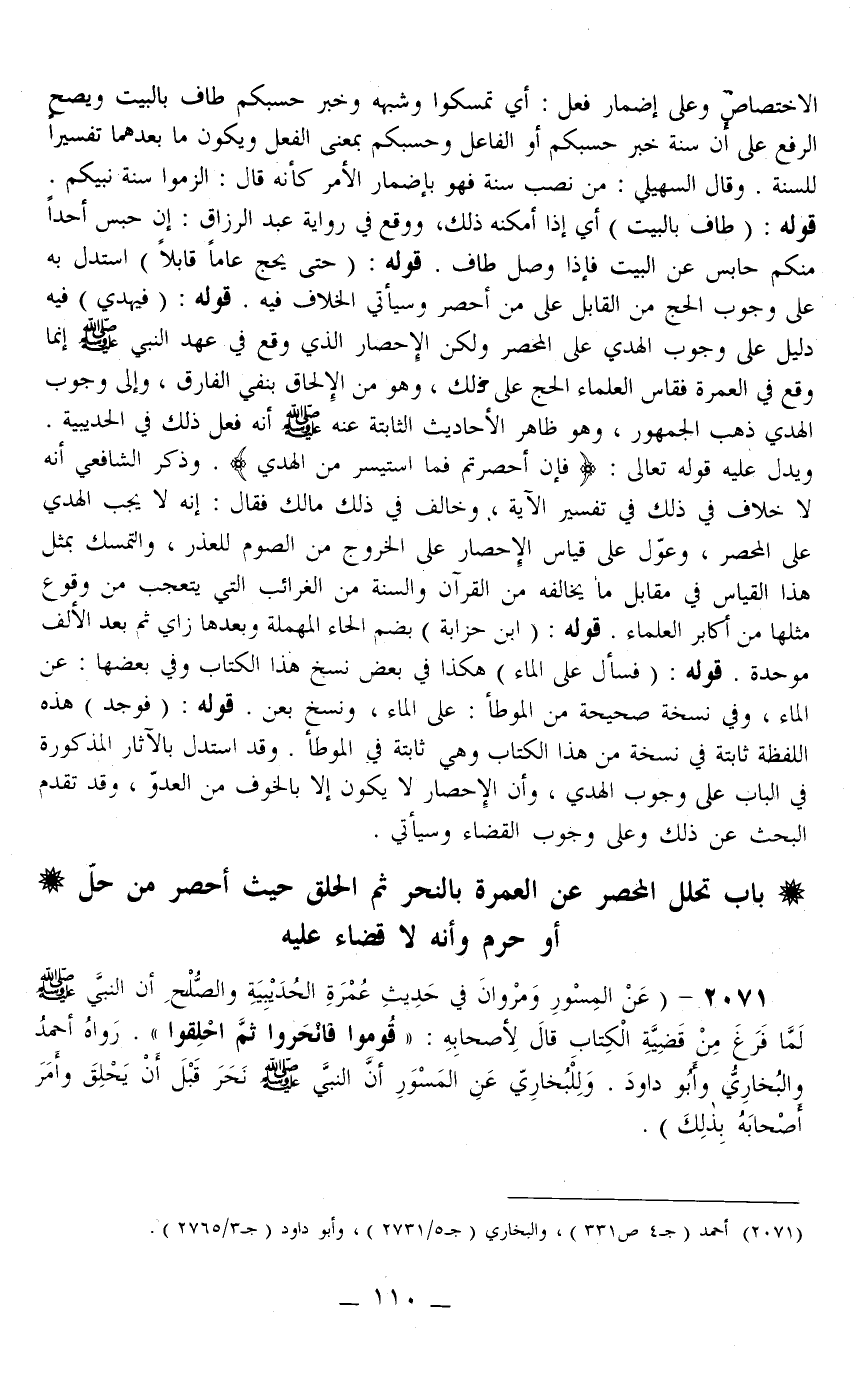 الاختصاص وعلى إضمار فعل : أي تمسكوا وشبهه وخبر حسبكم طاف بالبيت ويصح
الرفع على أن سنة خبر حسبكم أو الفاعل وحسبكم بمعنى الفعل ويكون ما بعدهما تفسيراً
للسنة . وقال السهيلي : من نصب سنة فهو بإضمار الأمر كأنه قال : الزموا سنة نبيكم .
قوله : ( طاف بالبيت ) أي إذا أمكنه ذلك، ووقع في رواية عبد الرزاق : إن حبس أحداً
منكم حابس عن البيت فإذا وصل طاف . قوله : ( حتى يحج عاماً قابلاً ) استدل به
على وجوب الحج من القابل على من أحصر وسيأتي الخلاف فيه . قوله : ( فيهدي ) فيه
دليل على وجوب الهدي على المحصر ولكن الإحصار الذي وقع في عهد النبي ﷺ إنما
وقع في العمرة فقاس العلماء الحج على ذلك ، وهو من الإلحاق بنفي الفارق ، وإلى وجوب
الهدي ذهب الجمهور ، وهو ظاهر الأحاديث الثابتة عنه ﷺ أنه فعل ذلك في الحديبية .
ويدل عليه قوله تعالى : ﴿ فإن أحصرتم فما استيسر من الهدي ﴾ . وذكر الشافعي أنه
لا خلاف في ذلك في تفسير الآية ، وخالف في ذلك مالك فقال : إنه لا يجب الهدي
على المحصر ، وعوّل على قياس الإحصار على الخروج من الصوم للعذر ، والتمسك بمثل
هذا القياس في مقابل ما يخالفه من القرآن والسنة من الغرائب التي يتعجب من وقوع
مثلها من أكابر العلماء . قوله : ( ابن حزابة ) بضم الحاء المهملة وبعدها زاي ثم بعد الألف
موحدة . قوله : ( فسأل على الماء ) هكذا في بعض نسخ هذا الكتاب وفي بعضها : عن
الماء ، وفي نسخة صحيحة من الموطأ : على الماء ، ونسخ بعن . قوله : ( فوجد ) هذه
اللفظة ثابتة في نسخة من هذا الكتاب وهي ثابتة في الموطأ . وقد استدل بالآثار المذكورة
في الباب على وجوب الهدي ، وأن الإحصار لا يكون إلا بالخوف من العدوّ ، وقد تقدم
البحث عن ذلك وعلى وجوب القضاء وسيأتي .
باب تحلل المحصر عن العمرة بالنحر ثم الحلق حيث أحصر من حلّ
أو حرم وأنه لا قضاء عليه
٢٠٧١ – ( عَنْ المِسْورِ وَمَرْوانَ في حَدِيثِ عُمْرَةِ الحُدَيْبِيَةِ والصُّلْحِ أن النبيَّ ﷺ
لَمَّا فَرَغَ مِنْ قَضِيَّةِ الْكِتابِ قالَ لِأصحابِهِ : « قُوموا فَانْحَروا ثمَّ احْلِقوا » . رَواهُ أحمدُ
والبُخاريُّ وأَبُو داودَ . وَلِلْبُخاريّ عَنِ المَسْوَرِ أنَّ النبيَّ ﷺ نَحَرَ قَبْلَ أَنْ يَحْلِقَ وأَمَرَ
أَصْحابَهُ بِذٰلِكَ ) .
(٢٠٧١) أحمد ( جـ٤ ص٣٣١ ) ، والبخاري ( جـ٢٧٣١/٥ ) ، وأبو داود ( جـ٢٧٦٥/٣ ) .
– ١١٠ –